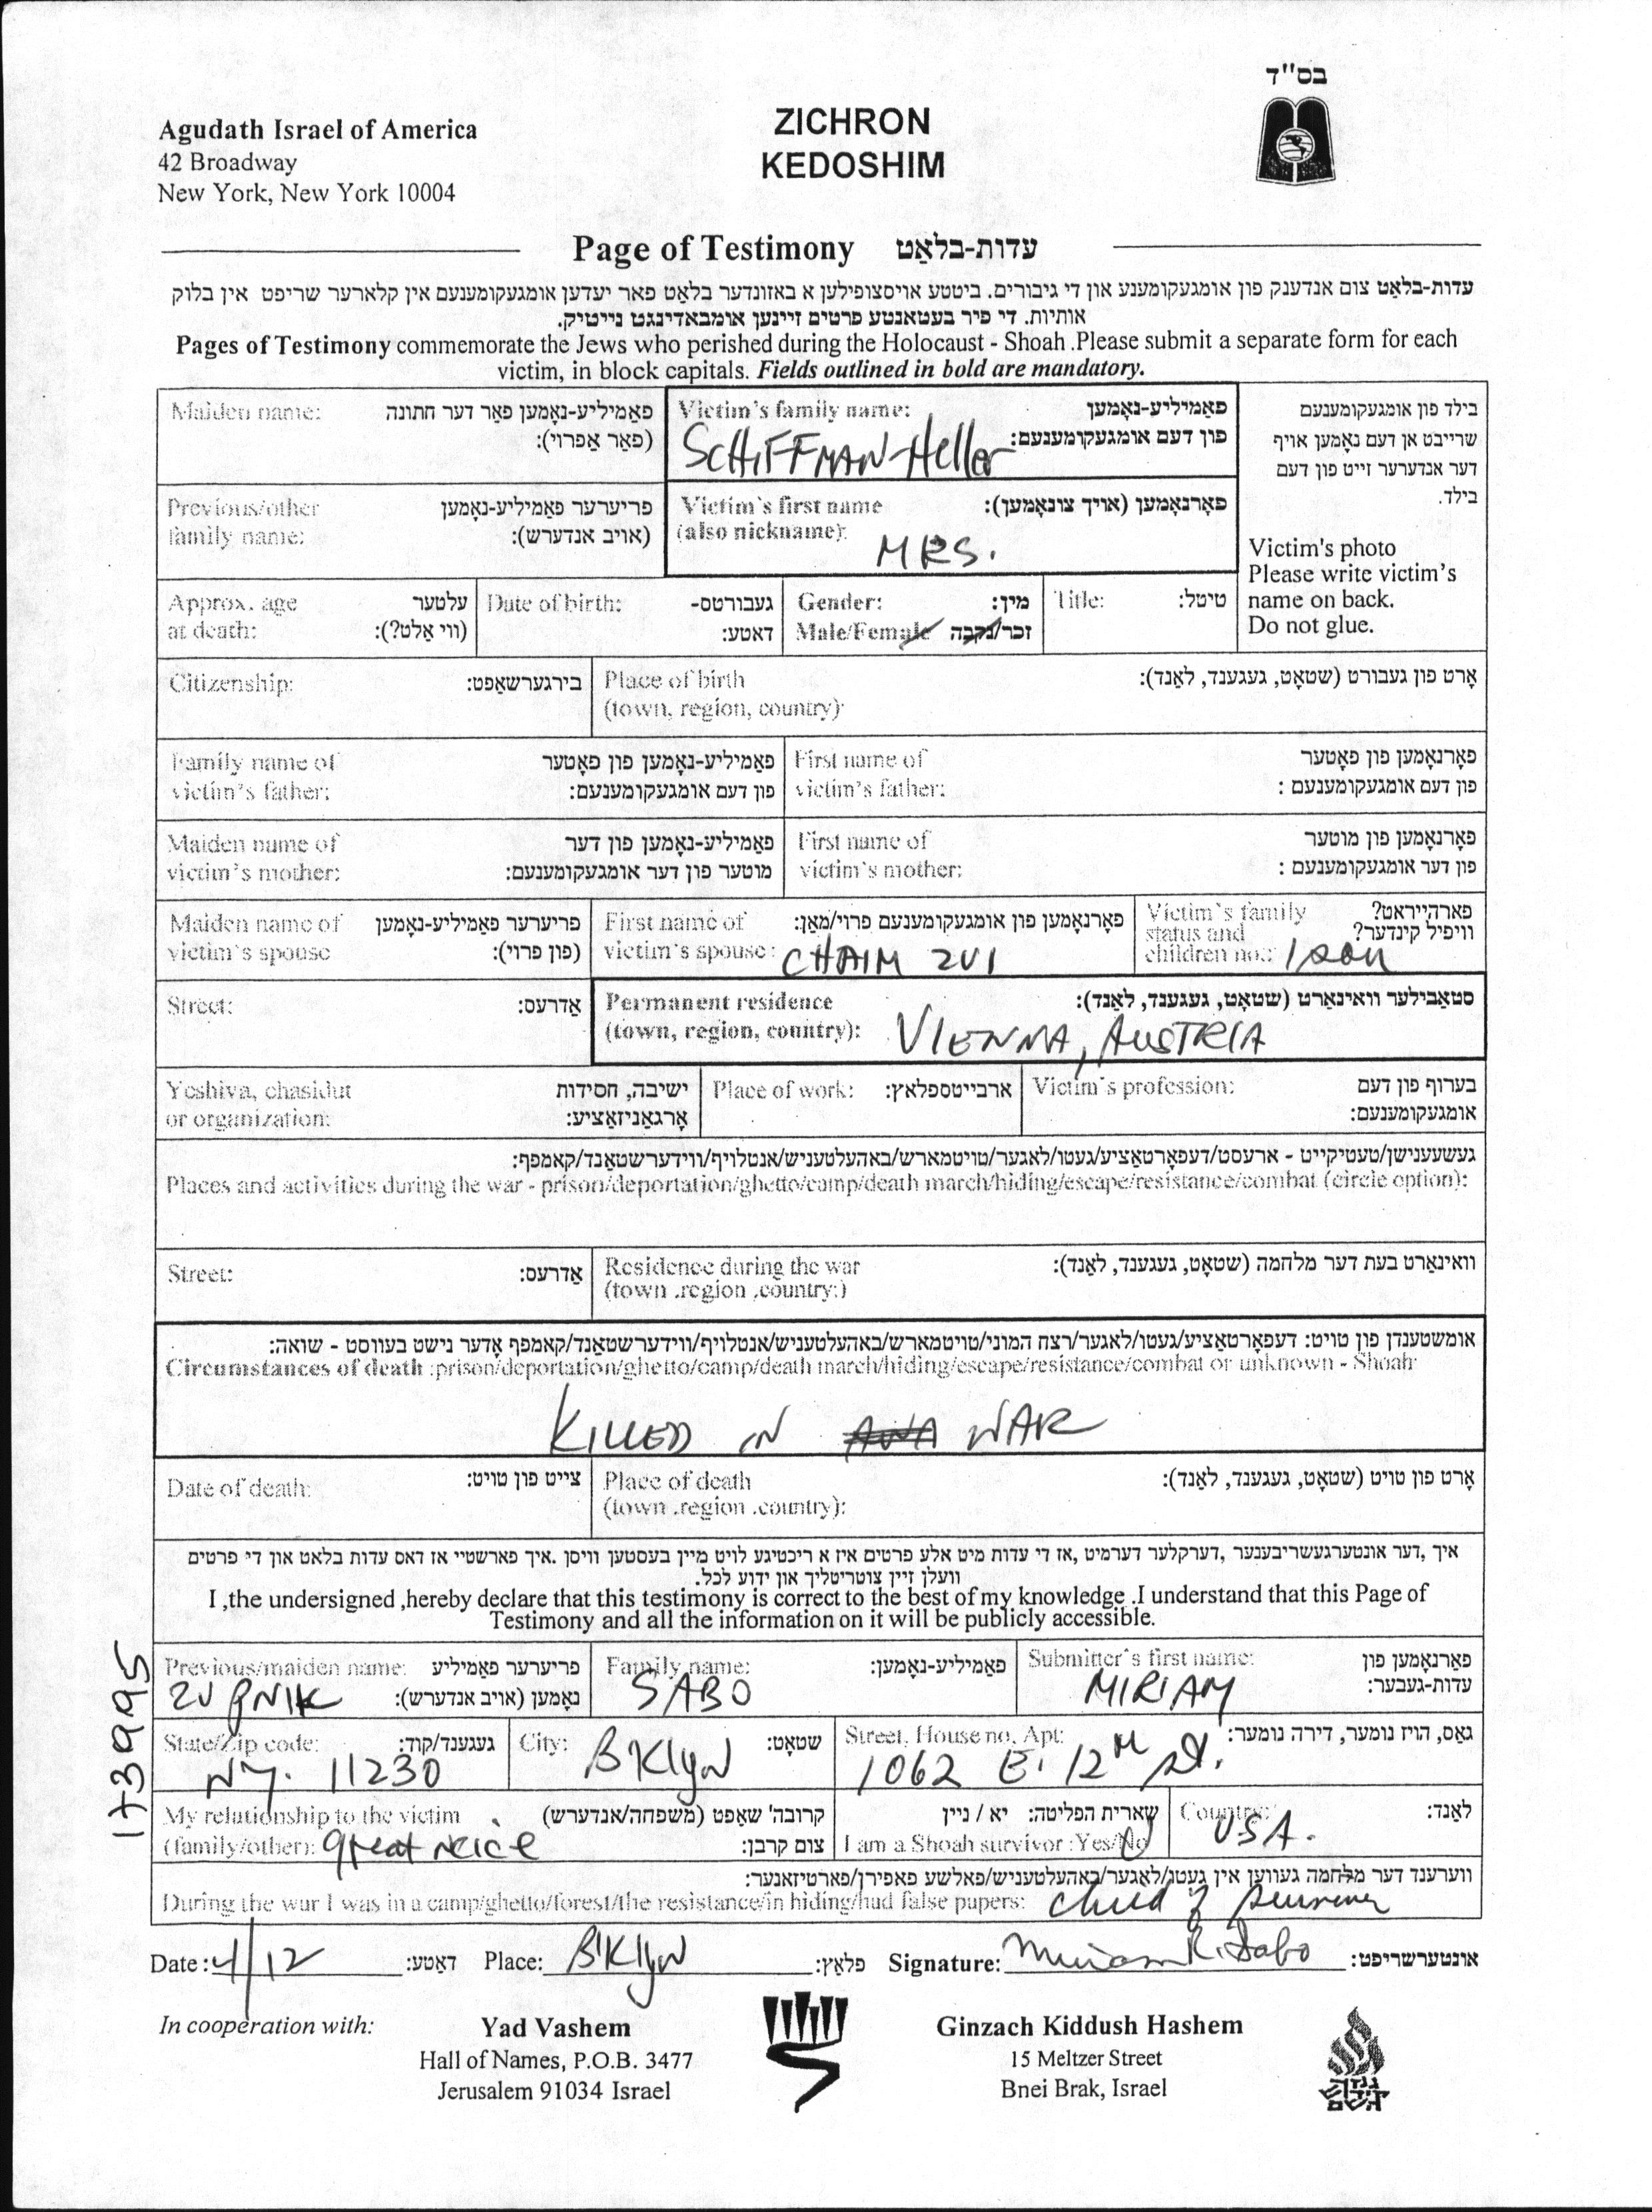 בס"ד
Agudath Israel of America
42 Broadway
New York, New York 10004
ZICHRON
KEDOSHIM
Page of Testimony עדות-בלאַט
עדות-בלאַט צום אנדענק פון אומגעקומענע און די גיבורים. ביטטע אויסצופילען א באזונדער בלאַט פאר יעדען אומגעקומענעם אין קלארער שריפט אין בלוק
אותיות. די פיר בעטאנטע פרטים זיינען אומבאדינגט נייטיק.
Pages of Testimony commemorate the Jews who perished during the Holocaust - Shoah .Please submit a separate form for each
victim, in block capitals. Fields outlined in bold are mandatory.
Maiden name: פאַמיליע-נאָמען פאַר דער חתונה
(פאַר אַפרוי):
Victim's family name: פאַמיליע-נאָמען
פון דעם אומגעקומענעם:
SCHIFFMAN-Heller
בילד פון אומגעקומענעם
שרייבט אן דעם נאָמען אויף
דער אנדערער זייט פון דעם
בילד.
Victim's photo
Please write victim's
name on back.
Do not glue.
Previous/other פריערער פאַמיליע-נאָמען
family name: (אויב אנדערש):
Victim's first name פאָרנאָמען (אויך צונאָמען):
(also nickname):
MRS.
Approx. age עלטער
at death: (ווי אַלט?):
Date of birth: געבורטס-
דאַטע:
Gender: מין:
Male/Female זכר/נקבה
Title: טיטל:
Citizenship: בירגערשאַפט:
Place of birth אָרט פון געבורט (שטאָט, געגענד, לאַנד):
(town, region, country)
Family name of פאַמיליע-נאָמען פון פאָטער
victim's father: פון דעם אומגעקומענעם:
First name of פאָרנאָמען פון פאָטער
victim's father: פון דעם אומגעקומענעם :
Maiden name of פאַמיליע-נאָמען פון דער
victim's mother: מוטער פון דער אומגעקומענעם:
First name of פאָרנאָמען פון מוטער
victim's mother: פון דער אומגעקומענעם :
Maiden name of פריערער פאַמיליע-נאָמען
victim's spouse (פון פרוי):
First name of פאָרנאָמען פון אומגעקומענעם פרוי/מאַן:
victim's spouse: CHAIM ZVI
Victim's family פארהייראט?
status and וויפיל קינדער?
children no.: 1 son
Street: אַדרעס:
Permanent residence סטאַבילער וואוינאַרט (שטאָט, געגענד, לאַנד):
(town, region, country): VIENNA, AUSTRIA
Yeshiva, chasidut ישיבה, חסידות
or organization: אָרגאַניזאַציע:
Place of work: ארבייטספלאץ:
Victim's profession: בערוף פון דעם
אומגעקומענעם:
געשעענישן/טעטיקייט - ארעסט/דעפאָרטאַציע/געטו/לאגער/טויטמארש/באהעלטעניש/אנטלויף/ווידערשטאַנד/קאמפף:
Places and activities during the war - prison/deportation/ghetto/camp/death march/hiding/escape/resistance/combat (circle option):
Street: אַדרעס:
Residence during the war וואוינאַרט בעת דער מלחמה (שטאָט, געגענד, לאַנד):
(town .region ,country:)
אומשטענדן פון טויט: דעפאָרטאַציע/געטו/לאגער/רצח המוני/טויטמארש/באהעלטעניש/אנטלויף/ווידערשטאַנד/קאמפף אָדער נישט בעוווסט - שואה:
Circumstances of death :prison/deportation/ghetto/camp/death march/hiding/escape/resistance/combat or unknown - Shoah
KILLED IN WAR
Date of death: צייט פון טויט:
Place of death אָרט פון טויט (שטאָט, געגענד, לאַנד):
(town .region .country):
איך ,דער אונטערגעשריבענער ,דערקלער דערמיט ,אז די עדות מיט אלע פרטים איז א ריכטיגע לויט מיין בעסטען וויסן .איך פארשטיי אז דאס עדות בלאט און די פרטים
וועלן זיין צוטריטליך און ידוע לכל.
I ,the undersigned ,hereby declare that this testimony is correct to the best of my knowledge .I understand that this Page of
Testimony and all the information on it will be publicly accessible.
173995
Previous/maiden name: פריערער פאַמיליע
ZUPNIK נאָמען (אויב אנדערש):
Family name: פאַמיליע-נאָמען:
SABO
Submitter's first name: פאַרנאָמען פון
עדות-געבער:
MIRIAM
State/Zip code: געגענד/קוד:
NY. 11230
City: שטאָט:
BKlyn
Street, House no, Apt: גאַס, הויז נומער, דירה נומער:
1062 E. 12th St.
My relationship to the victim קרובה' שאַפט (משפחה/אנדערש)
(family/other): great neice צום קרבן:
שארית הפליטה: יא / ניין
I am a Shoah survivor :Yes/No
Country: לאַנד:
USA.
ווערענד דער מלחמה געווען אין געטו/לאגער/באהעלטעניש/פאלשע פאפירן/פארטיזאנער:
During the war I was in a camp/ghetto/forest/the resistance/in hiding/had false papers: child of survivor
Date: 4/12 דאַטע: Place: BKlyn פלאַץ: Signature: Miriam R. Sabo אונטערשריפט:
In cooperation with:
Yad Vashem
Hall of Names, P.O.B. 3477
Jerusalem 91034 Israel
Ginzach Kiddush Hashem
15 Meltzer Street
Bnei Brak, Israel
גנזך
קידוש
השם